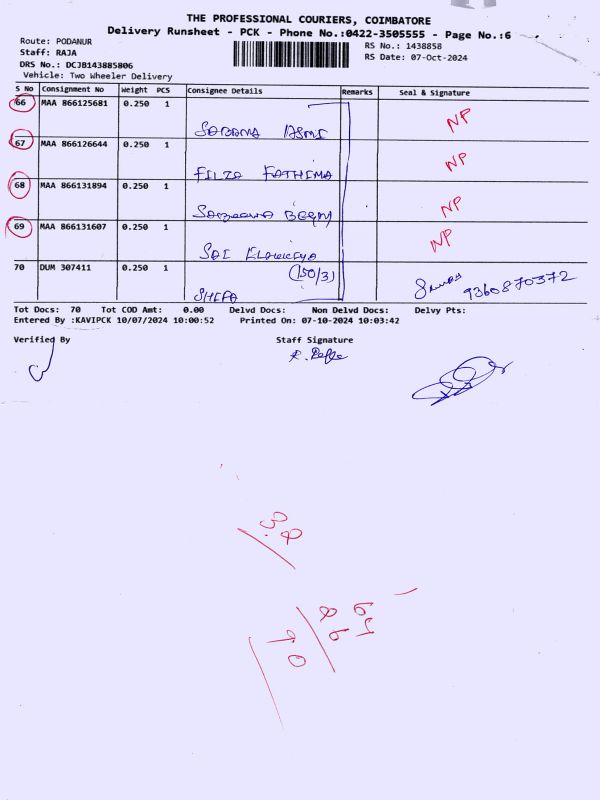 THE PROFESSIONAL COURIERS, COIMBATORE
Delivery Runsheet - PCK - Phone No.:0422-3505555 - Page No.:6
Route: PODANUR
RS No.: 1438858
Staff: RAJA
RS Date: 07-Oct-2024
DRS No.: DCJB143885806
Vehicle: Two Wheeler Delivery
S No Consignment No Weight PCS Consignee Details Remarks Seal & Signature
66 MAA 866125681 0.250 1 NP
67 MAA 866126644 0.250 1 FILZA FATHIMA NP
68 MAA 866131894 0.250 1 BEGAM NP
69 MAA 866131607 0.250 1 SAI NP
70 DUM 307411 0.250 1 (150/3) SHEFA 9360870372
Tot Docs: 70 Tot COD Amt: 0.00 Delvd Docs: Non Delvd Docs: Delvy Pts:
Entered By :KAVIPCK 10/07/2024 10:00:52 Printed On: 07-10-2024 10:03:42
Verified By Staff Signature